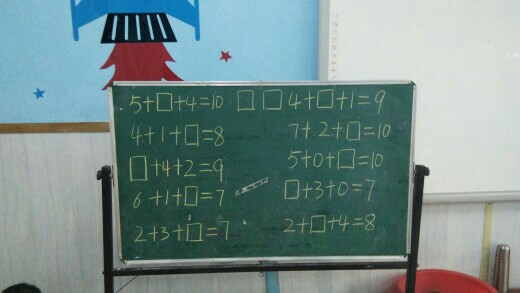 5+□+4=10 □ □ 4+□+1=9
4+1+□=8 7+2+□=10
□+4+2=9 5+0+□=10
6+1+□=7 □+3+0=7
2+3+□=7 2+□+4=8